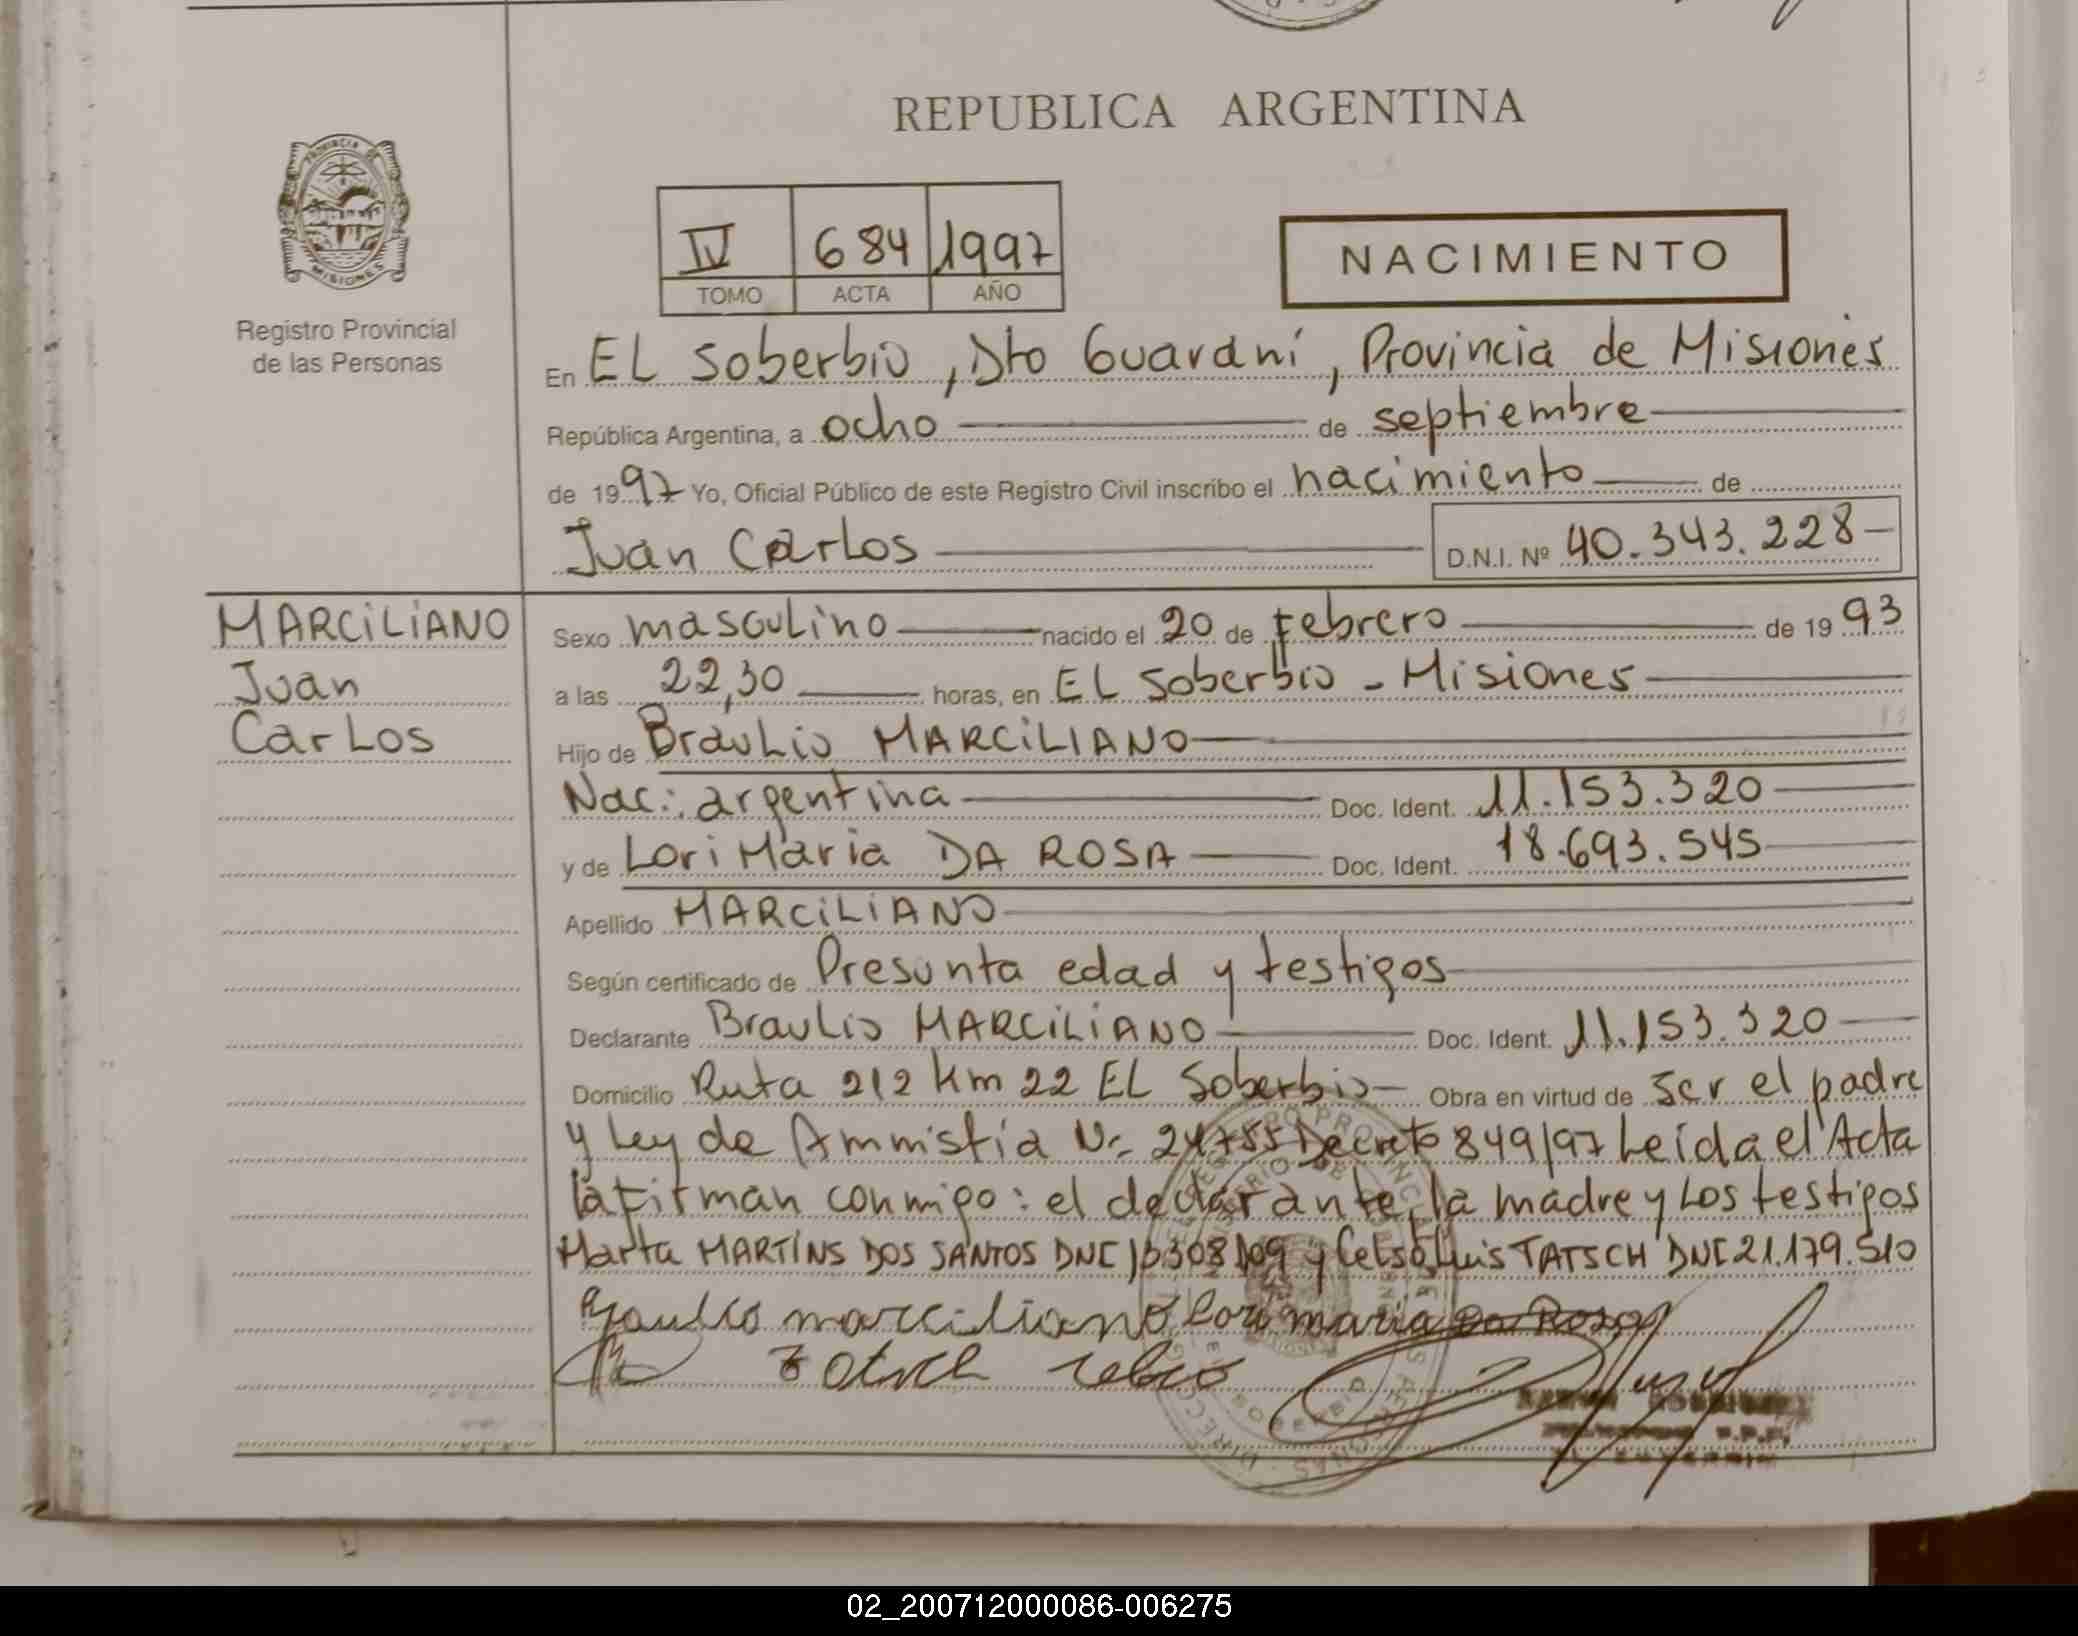 REPUBLICA ARGENTINA
PROVINCIA DE
MISIONES
Registro Provincial
de las Personas
IV 684 1997
TOMO ACTA AÑO
NACIMIENTO
En EL Soberbio, Dto Guaraní, Provincia de Misiones
República Argentina, a ocho de septiembre
de 1997 Yo, Oficial Público de este Registro Civil inscribo el nacimiento de
Juan Carlos D.N.I. Nº 40.343.228
MARCILIANO
Juan
Carlos
Sexo masculino nacido el 20 de Febrero de 1993
a las 22,30 horas, en EL Soberbio - Misiones
Hijo de Braulio MARCILIANO
Nac.: argentina Doc. Ident. 11.153.320
y de Lori Maria DA ROSA Doc. Ident. 18.693.545
Apellido MARCILIANO
Según certificado de Presunta edad y testigos
Declarante Braulio MARCILIANO Doc. Ident. 11.153.320
Domicilio Ruta 212 Km 22 EL Soberbio Obra en virtud de ser el padre
y Ley de Ammistia Nº 24755 Decreto 849/97 Leída el Acta
la firman conmigo: el declarante, la madre y Los testigos
Marta MARTINS DOS SANTOS DNI y Celso Luis TATSCH DNI 21.179.510
Braulio marciliano Lori maria da Rosa
02_200712000086-006275